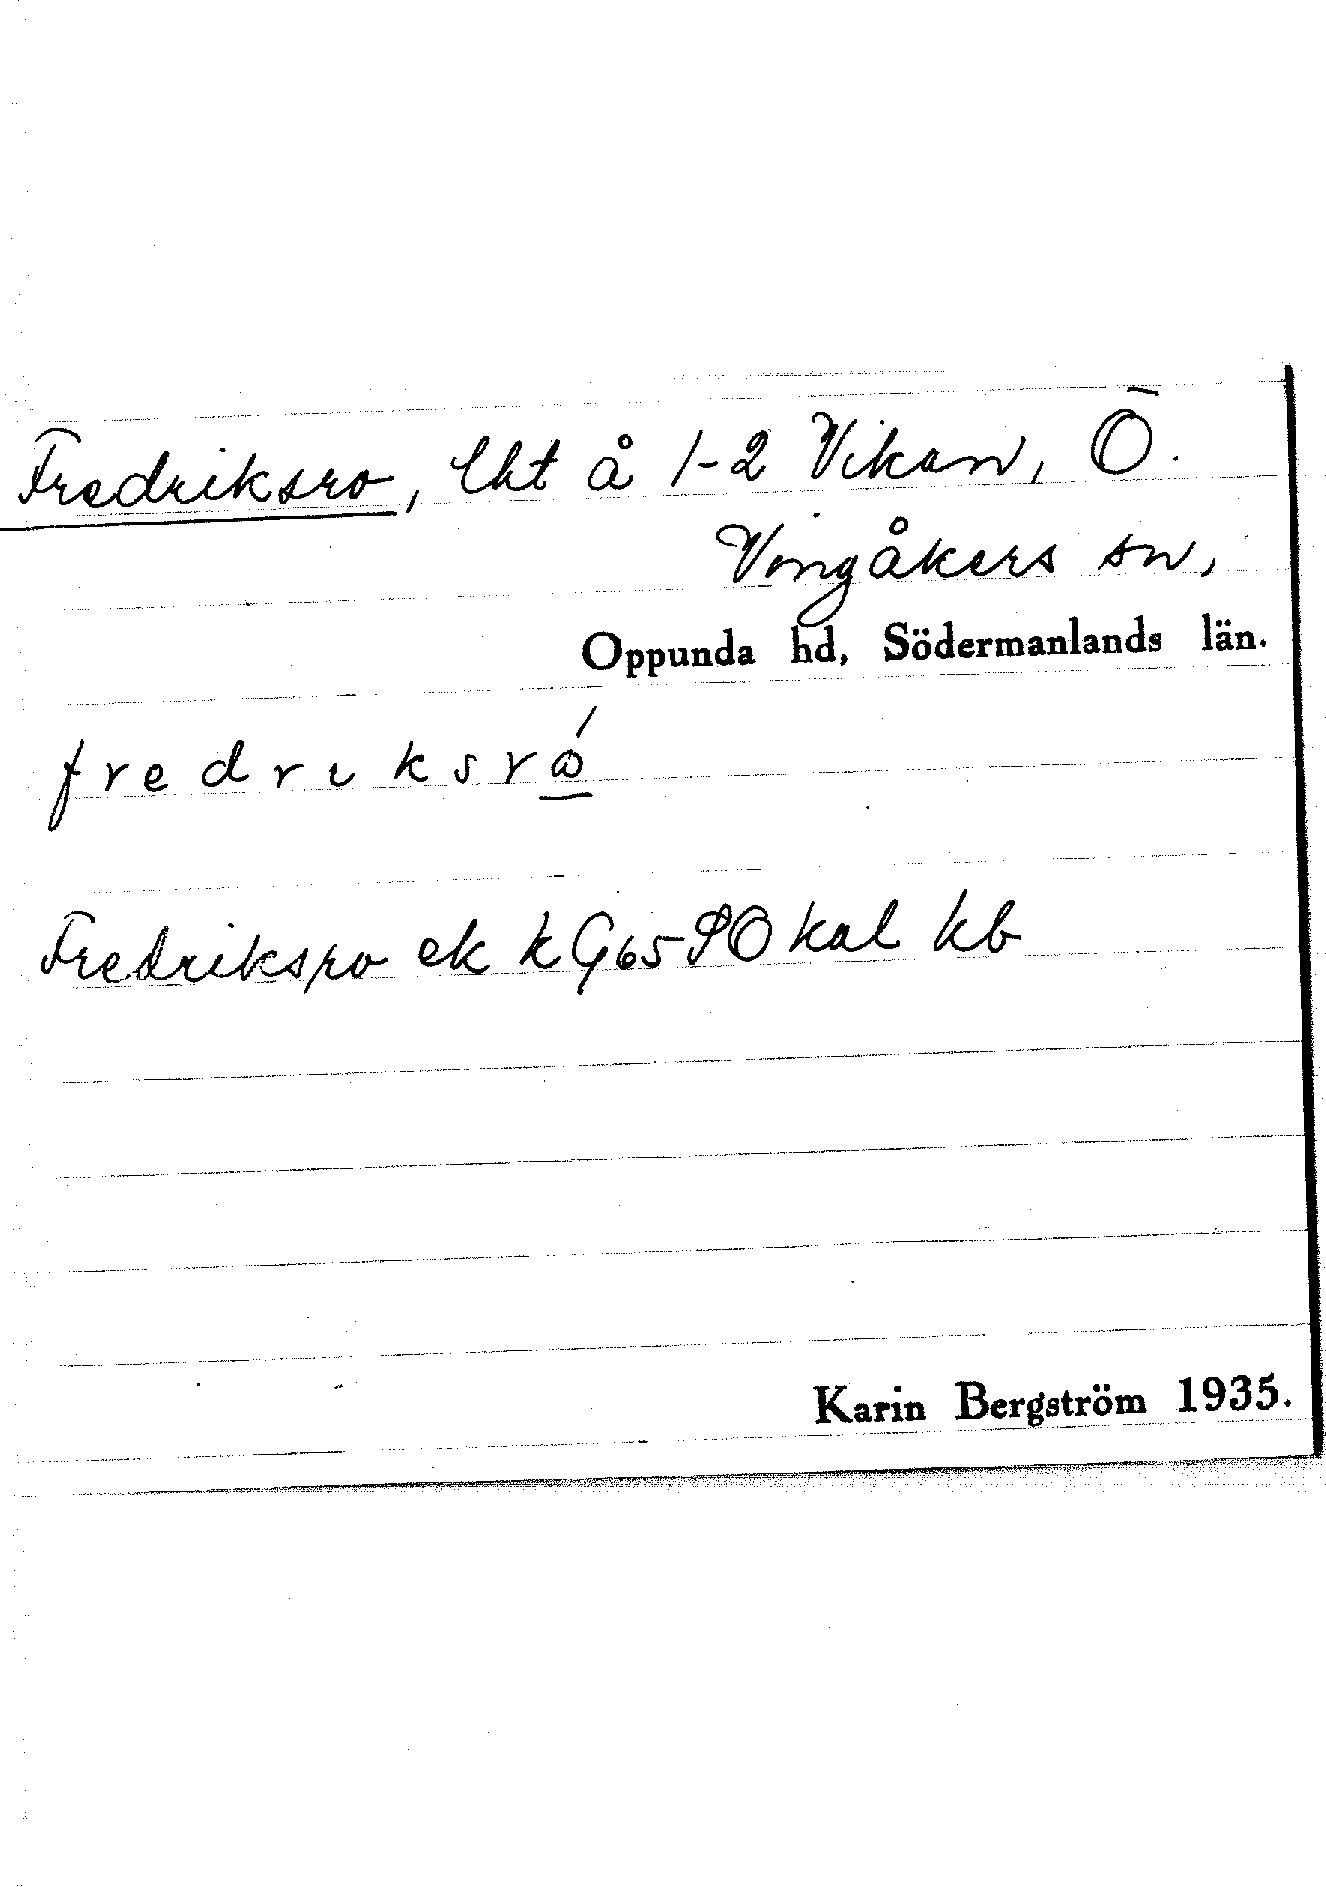 Fredriksro, lht å 1-2 Vikan, Ö.
Vingåkers sn,
Oppunda hd, Södermanlands län.
fredriksró
Fredriksro ek k G65 SO kal kb
Karin Bergström 1935.